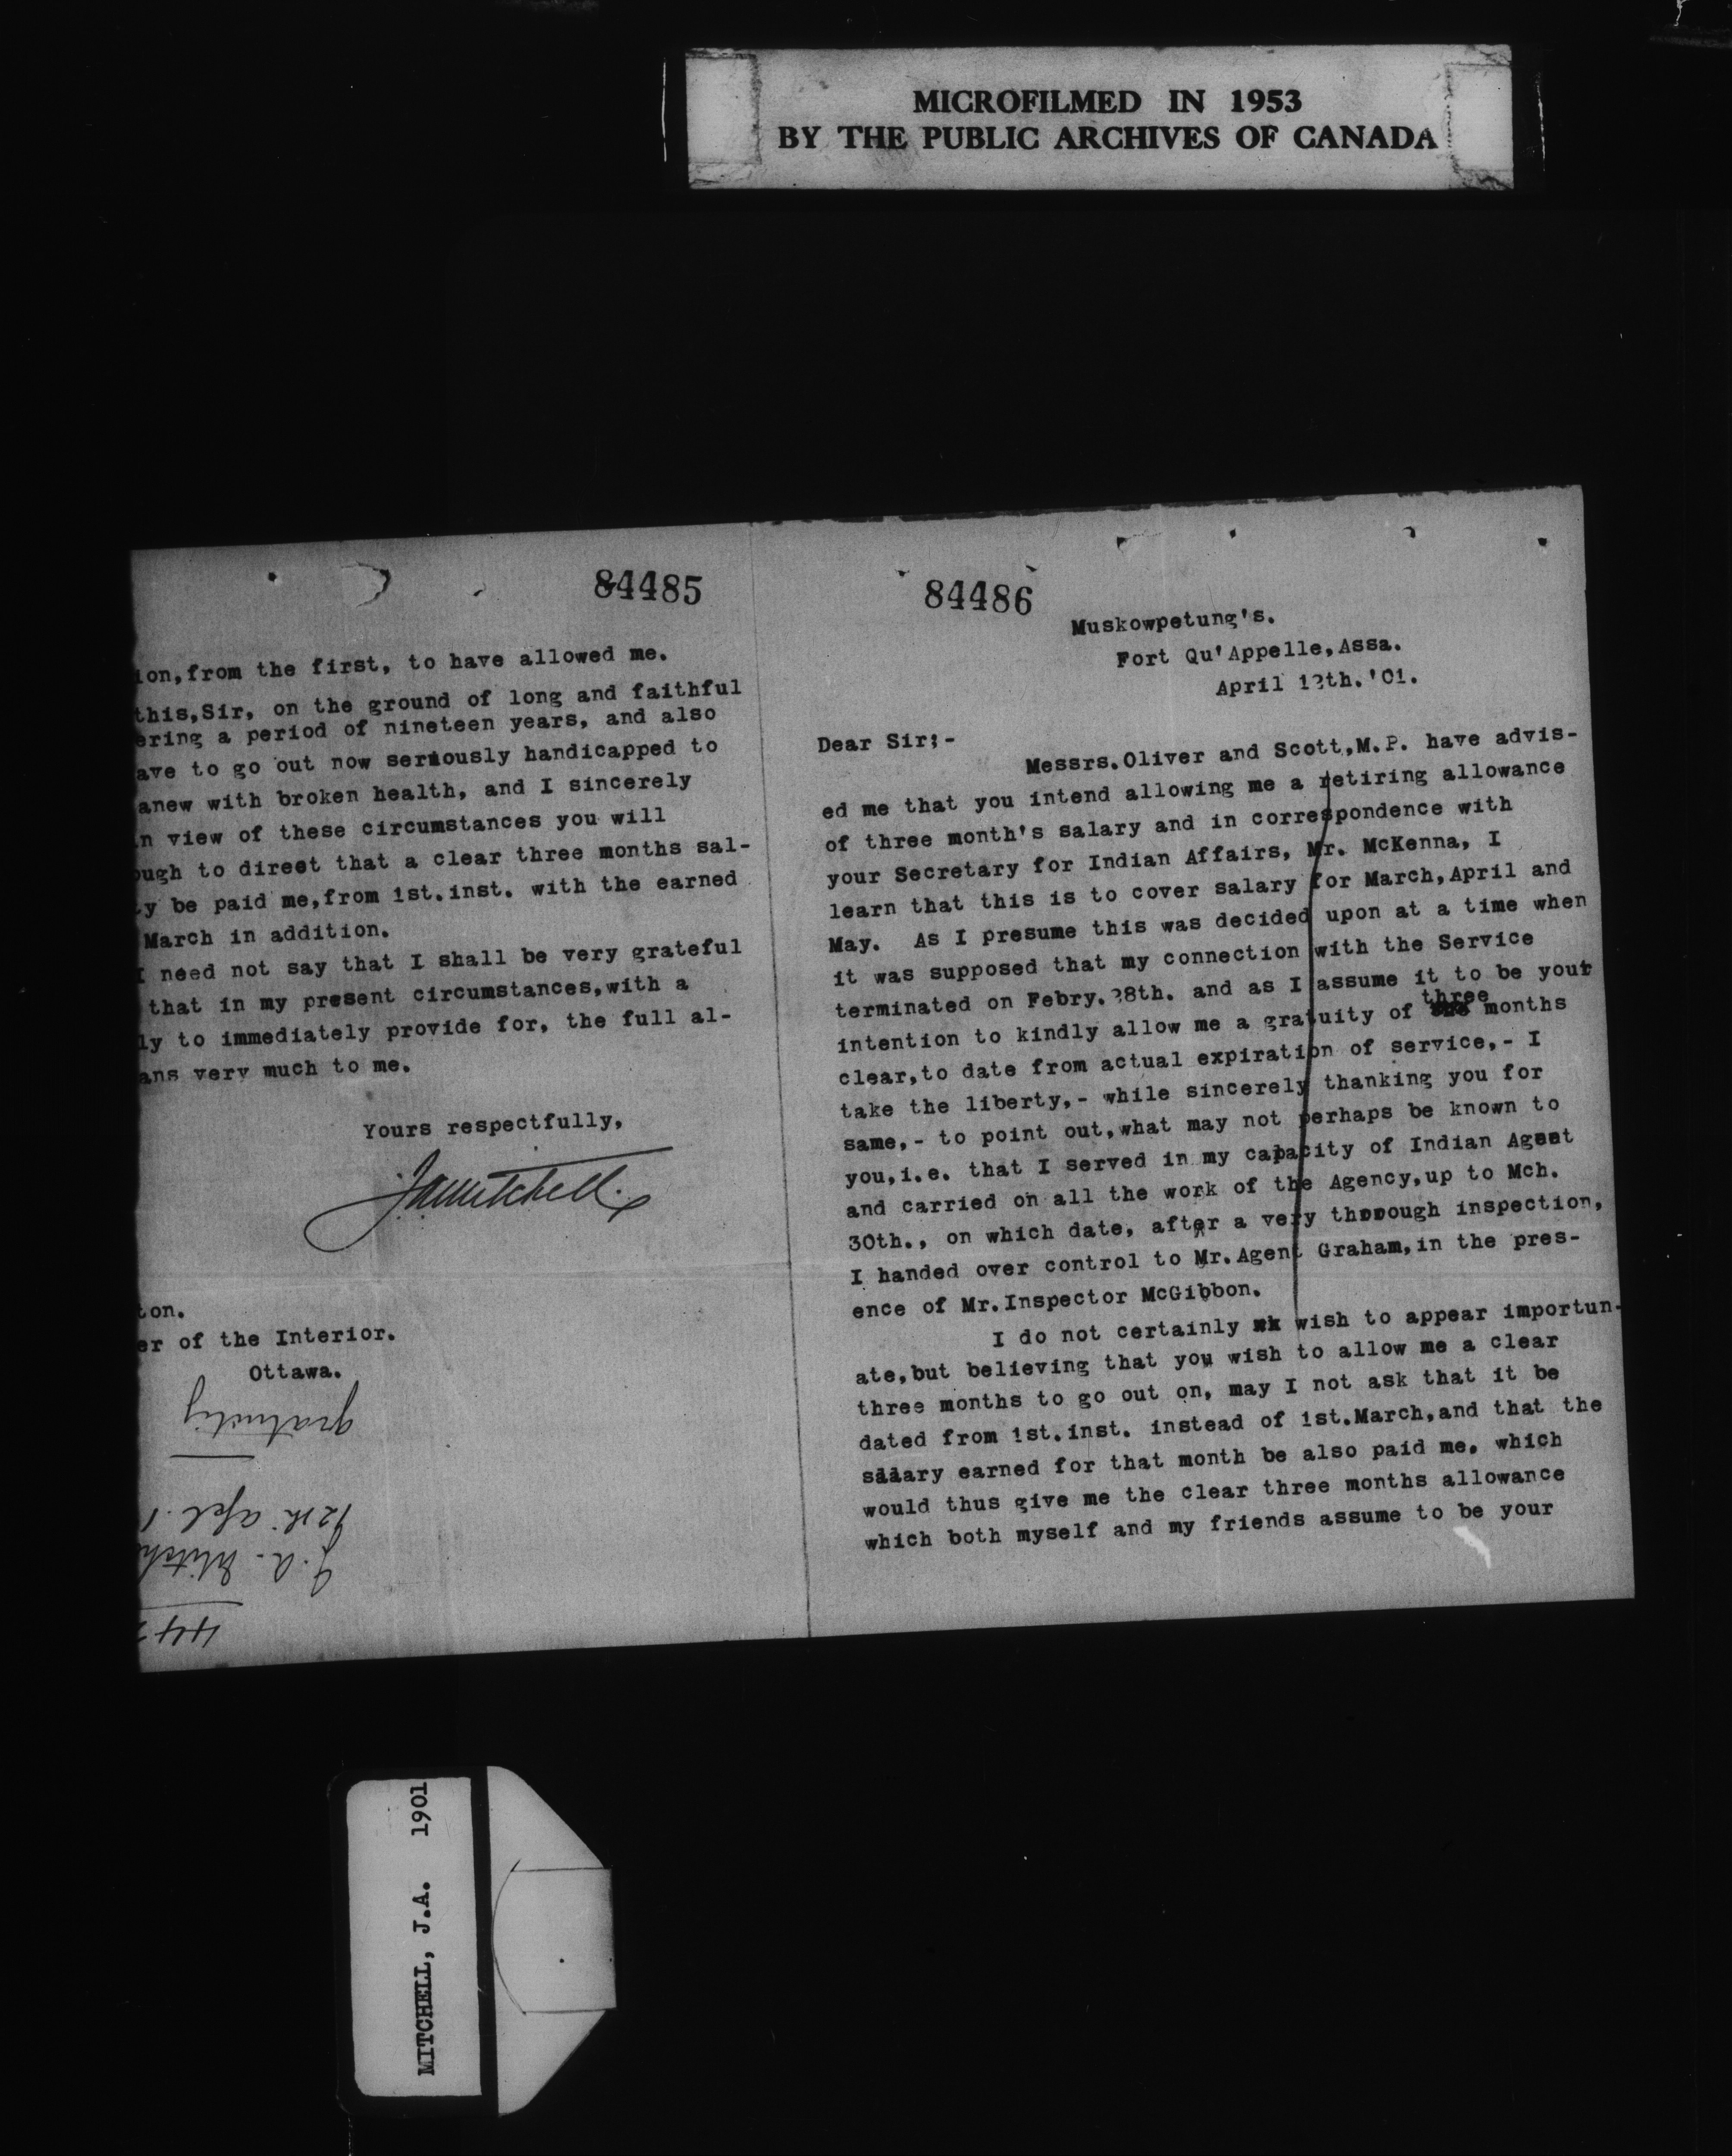 MICROFILMED IN 1953
BY THE PUBLIC ARCHIVES OF CANADA
84485
ion,from the first, to have allowed me.
this,Sir, on the ground of long and faithful
ering a period of nineteen years, and also
ave to go out now seriously handicapped to
anew with broken health, and I sincerely
n view of these circumstances you will
ough to direet that a clear three months sal-
y be paid me,from 1st.inst. with the earned
March in addition.
I need not say that I shall be very grateful
that in my present circumstances,with a
ly to immediately provide for, the full al-
ans very much to me.
Yours respectfully,
J.A.Mitchell.
ton.
er of the Interior.
Ottawa.
gratuity
12th. Apl. 1
J.A. Mitch
44
84486
Muskowpetung's.
Fort Qu'Appelle,Assa.
April 12th.'01.
Dear Sir;-
Messrs.Oliver and Scott,M.P. have advis-
ed me that you intend allowing me a retiring allowance
of three month's salary and in correspondence with
your Secretary for Indian Affairs, Mr. McKenna, I
learn that this is to cover salary for March,April and
May. As I presume this was decided upon at a time when
it was supposed that my connection with the Service
terminated on Febry.28th. and as I assume it to be your
intention to kindly allow me a gratuity of three months
clear,to date from actual expiration of service,- I
take the liberty,- while sincerely thanking you for
same,- to point out,what may not perhaps be known to
you,i.e. that I served in my capacity of Indian Agent
and carried on all the work of the Agency,up to Mch.
30th., on which date, after a very thorough inspection,
I handed over control to Mr.Agent Graham,in the pres-
ence of Mr.Inspector McGibbon.
I do not certainly wish to appear importun-
ate,but believing that you wish to allow me a clear
three months to go out on, may I not ask that it be
dated from 1st.inst. instead of 1st.March,and that the
salary earned for that month be also paid me, which
would thus give me the clear three months allowance
which both myself and my friends assume to be your
MITCHELL, J.A. 1901